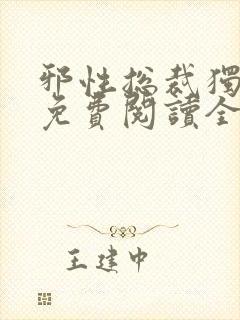 邪性总裁獨
免費閱讀全
王建中